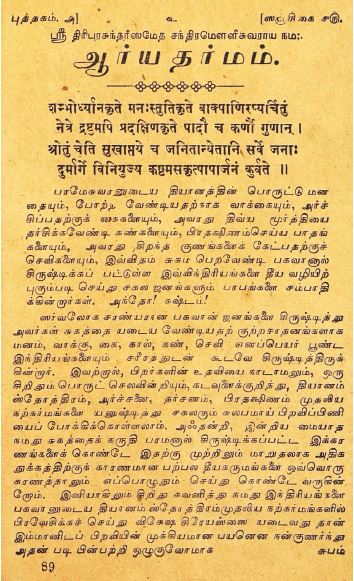 புத்தகம். அ] உ [ஸஞ்சிகை சடு.
ஸ்ரீ திரிபுரசுந்தரீஸமேத சந்திரமௌளீசுவராய நம:
ஆர்யதர்மம்.
शम्भोर्ध्यानकृते मनःस्तुतिकृते वाक्पाणिरप्यर्चितुं
नेत्रे द्रष्टुमपि प्रदक्षिणकृते पादौ च कर्णौ गुणान् ।
श्रोतुं चेति सुखाप्तये च जनितान्येतानि सर्वे जनाः
दुर्मार्गे विनियुज्य कष्टमसकृत्पापार्जनं कुर्वते ॥
பரமேசுவரனுடைய தியானத்தின் பொருட்டு மன
தையும், போற்ற வேண்டியதற்காக வாக்கையும், அர்ச்
சிப்பதற்குக் கைகளையும், அவரது திவ்ய மூர்த்தியை
தர்சிக்கவேண்டி கண்களையும், பிரதக்ஷிணம்செய்ய பாதங்
களையும், அவரது சிறந்த குணங்களைக் கேட்பதற்குச்
செவிகளையும், இவ்விதம் சுகம் பெறவேண்டி பகவானால்
சிருஷ்டிக்கப் பட்டுள்ள இவ்விந்திரியங்களை தீய வழியிற்
புகும்படி செய்து சகல ஜனங்களும் பாபங்களை சம்பாதி
க்கின்றார்கள். அந்தோ! கஷ்டம்!
ஸர்வலோக சரண்யரான பகவான் ஜனங்களை சிருஷ்டித்து
அவர்கள் சுகத்தை யடைய வேண்டியதற் குற்றசாதனங்களாக
மனம், வாக்கு, கை, கால், கண், செவி எனப்பெயர் பூண்ட
இந்திரியங்களையும் சரீரத்துடன் கூடவே சிருஷ்டித்திருக்
கின்றார். இவற்றால், பிறர்களின் உதவியை நாடாமலும், ஒரு
சிறிதும் பொருட் செலவின்றியும், கடவுளைக்குறித்து, தியானம்
ஸ்தோத்திரம், அர்ச்சனை, தர்சனம், பிரதக்ஷிணம் முதலிய
நற்கர்மங்களை யனுஷ்டித்து சகலரும் சுலபமாய் பிறவிப்பிணி
யைப் போக்கிக்கொள்ளலாம். அஃதன்றி, இன்றிய மையாத
நமது சுகத்தைக் கருதி பரமனால் சிருஷ்டிக்கப்பட்ட இக்கர
ணங்களைக் கொண்டே இதற்கு முற்றிலும் மாறுதலாக அதிக
துக்கத்திற்குக் காரணமான பற்பல தீயகருமங்களை ஒவ்வொரு
கரணத்தாலும் எப்பொழுதும் செய்து கொண்டே வருகின்
றோம். இனியாகிலும் சிறிது கவனித்து நமது இந்திரியங்களை
பகவானுடைய தியானம் ஸ்தோத்திரம்முதலிய நற்காரியங்களில்
பிரவேசிக்கச் செய்து விசேஷ சிரேயஸ்ஸை யடைவது தான்
இம்மானிடப் பிறவியின் முக்கியமான பயனென நன்குணர்ந்து
அதன் படி பின்பற்றி ஒழுகுவோமாக சுபம்
89